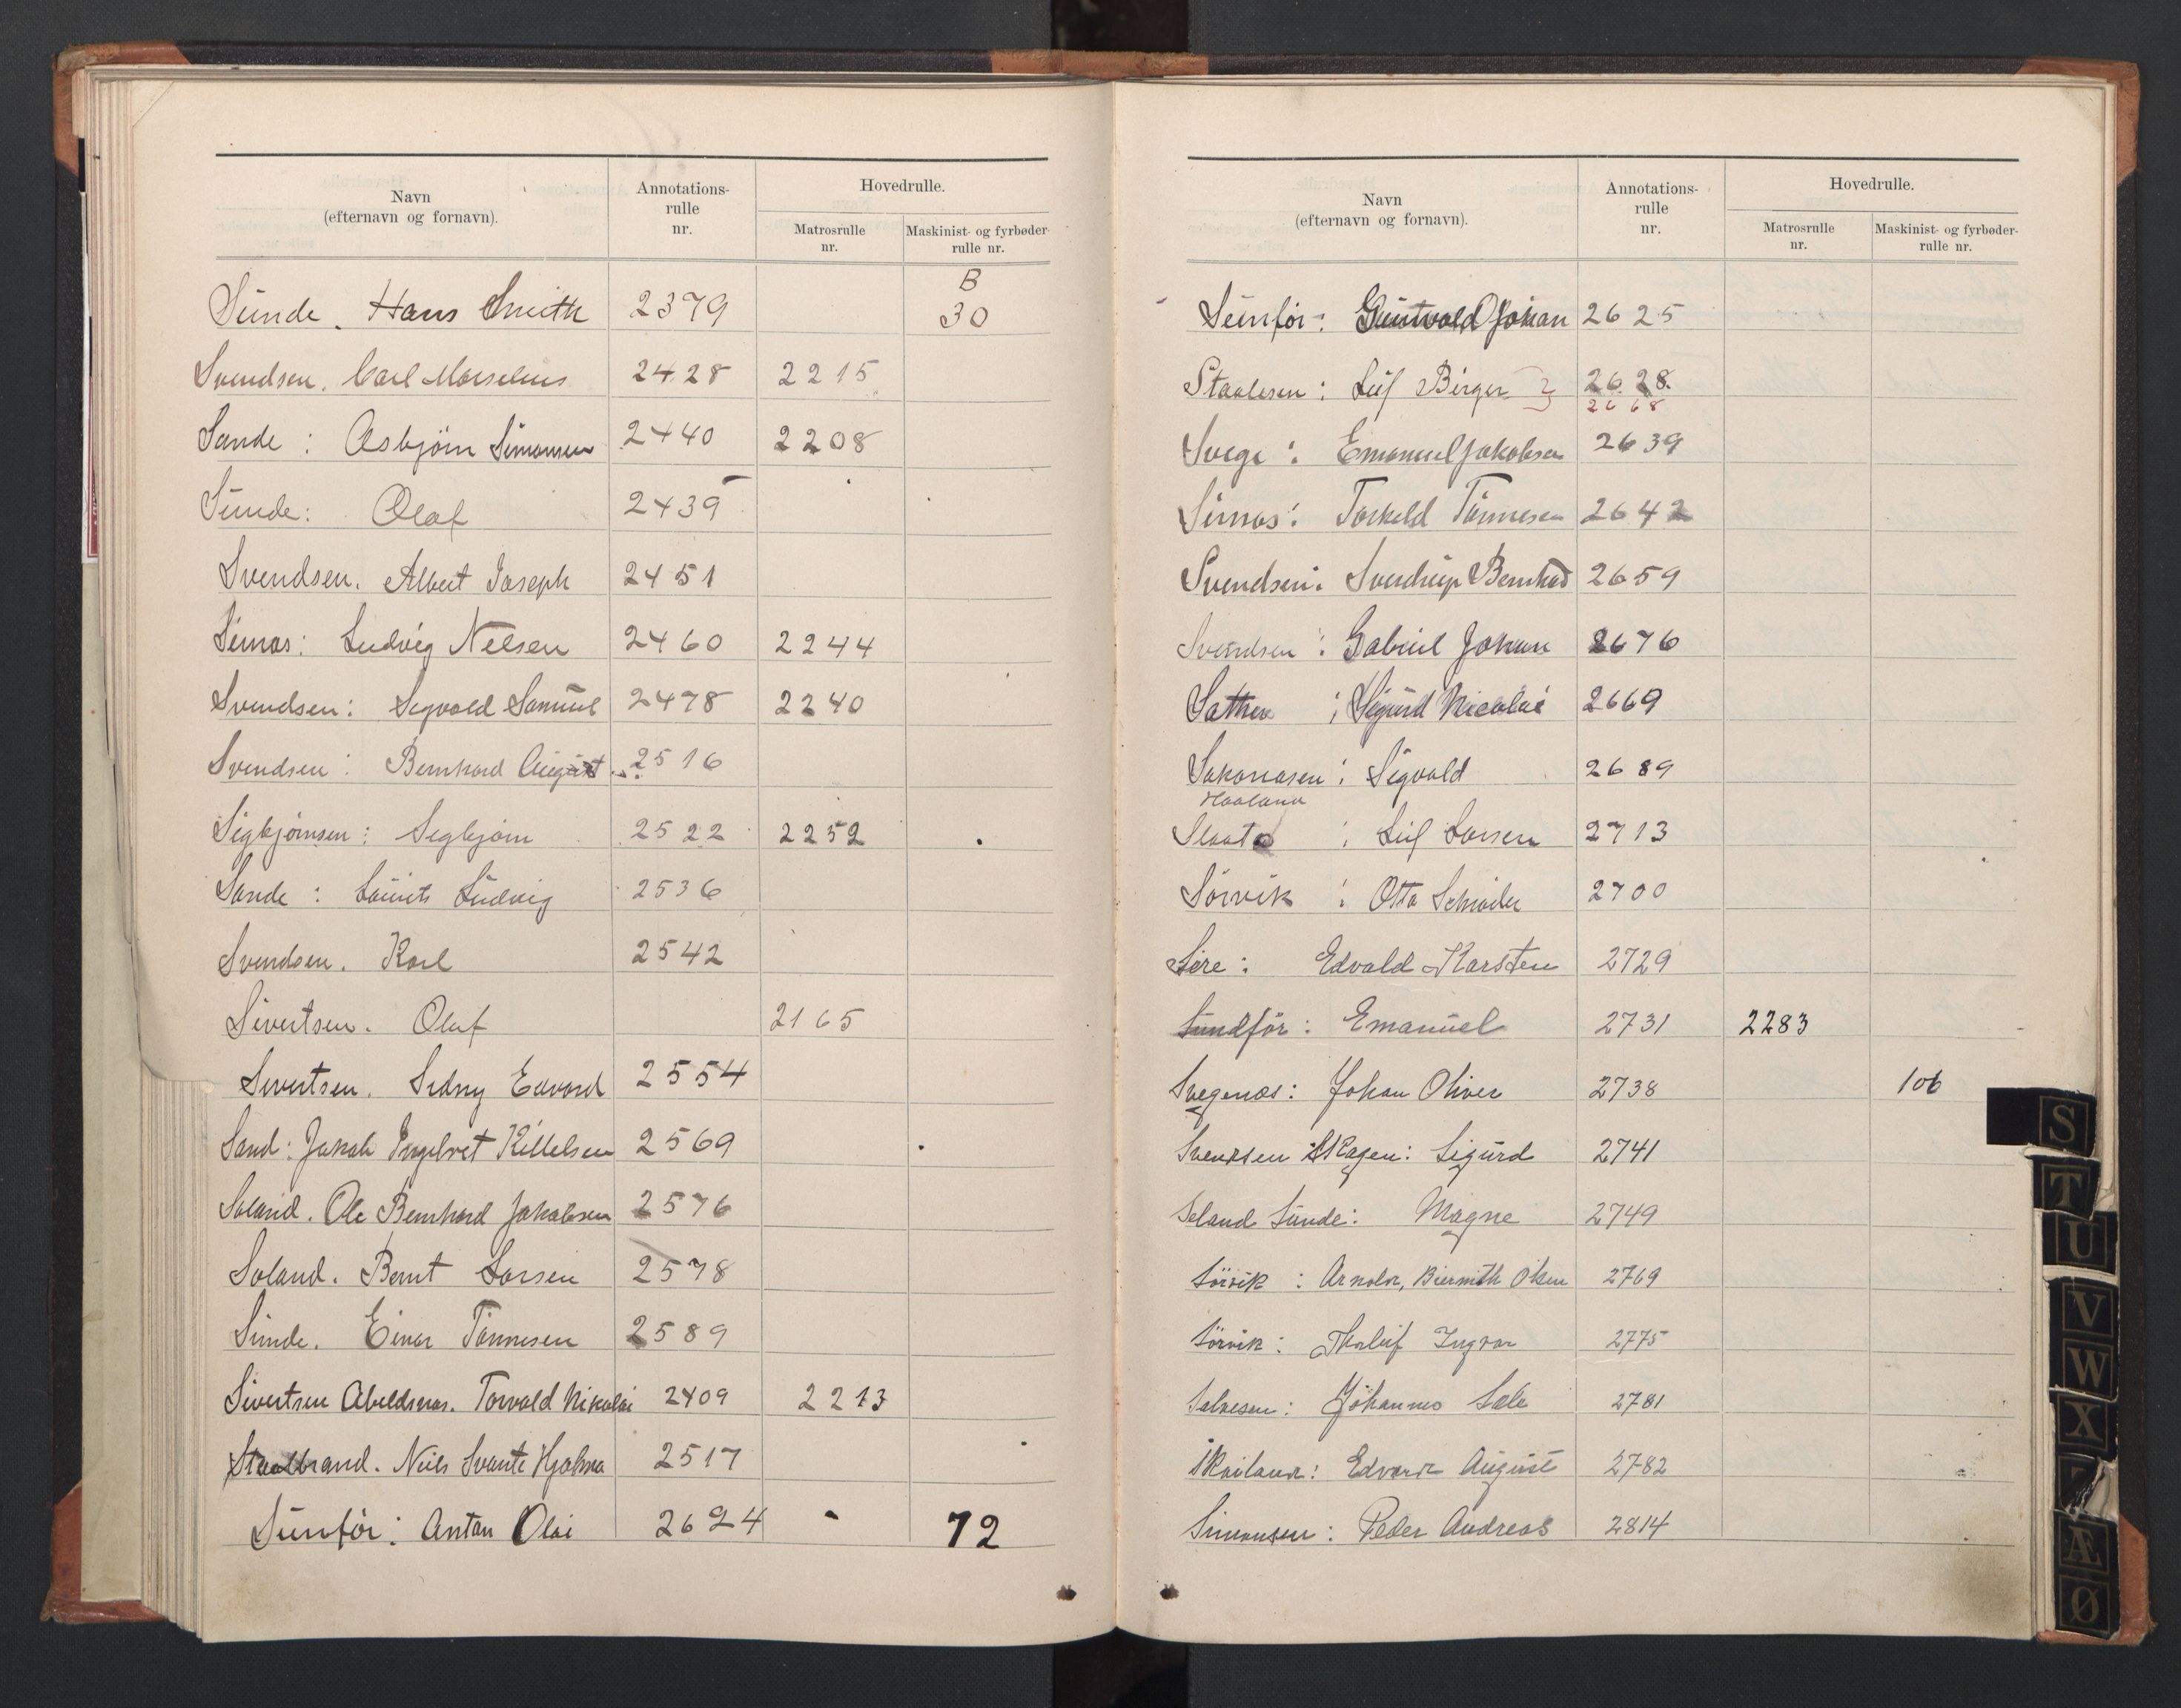 Navn (efternavn og fornavn). Annotations-rulle nr. Hovedrulle. Matrosrulle nr. Maskinist- og fyrbøder-rulle nr.
Sunde. Hans Smith 2379 B 30
Svendsen. Carl Marselius 2428 2215
Sande: Asbjörn Simonsen 2440 2208
Sunde: Olaf 2439
Svendsen. Albert Joseph 2451
Simas: Ludvig Nelsen 2460 2244
Svendsen: Segvald Samuel 2478 2240
Svendsen: Bernhard August 2516
Sigbjörnsen: Segbjörn 2522 2252
Sande: Lauits Ludvig 2536
Svendsen. Karl 2542
Sivertsen. Oluf 2165
Sivertsen. Sidny Edvard 2554
Sand: Jakob Ingelvet Killelsen 2569
Soland. Ole Bernhard Jakobsen 2576
Soland. Bernt Larsen 2578
Sunde. Einar Tönnesen 2589
Sivertsen Abeldsnæs. Torvald Nikolai 2409 2213
Staalbrand. Niels Svante Hjalma 2517
Sunför: Anton Olai 2624 72
Navn (efternavn og fornavn). Annotations-rulle nr. Hovedrulle. Matrosrulle nr. Maskinist- og fyrbøder-rulle nr.
Sunför: Guntvald Johan 2625
Staalesen: Leif Birger 2628
2668
Svege: Emanuel Jakobsen 2639
Simas: Torkeld Tönnesen 2642
Svendsen: Sverdrup Bernhad 2659
Svendsen: Gabriel Johan 2676
Sathre: Sigurd Nicolai 2669
Sakariasen: Sigvald 2689
Haaland
Slaato: Leif Larsen 2713
Sörvik: Otto Schröder 2700
Sire: Edvald Karsten 2729
Sundför: Emanuel 2731 2283
Svegenæs: Johan Oliver 2738 106
Svendsen Skagen: Sigurd 2741
Seland Sunde: Magne 2749
Sörvik: Arnold, Biermith Olsen 2769
Sörvik: Thorleif Ingvar 2775
Salvesen: Johannes Sele 2781
Skailand: Edvard August 2782
Simonsen: Peder Andreas 2814
S
T
U
V
W
X
Æ
Ø